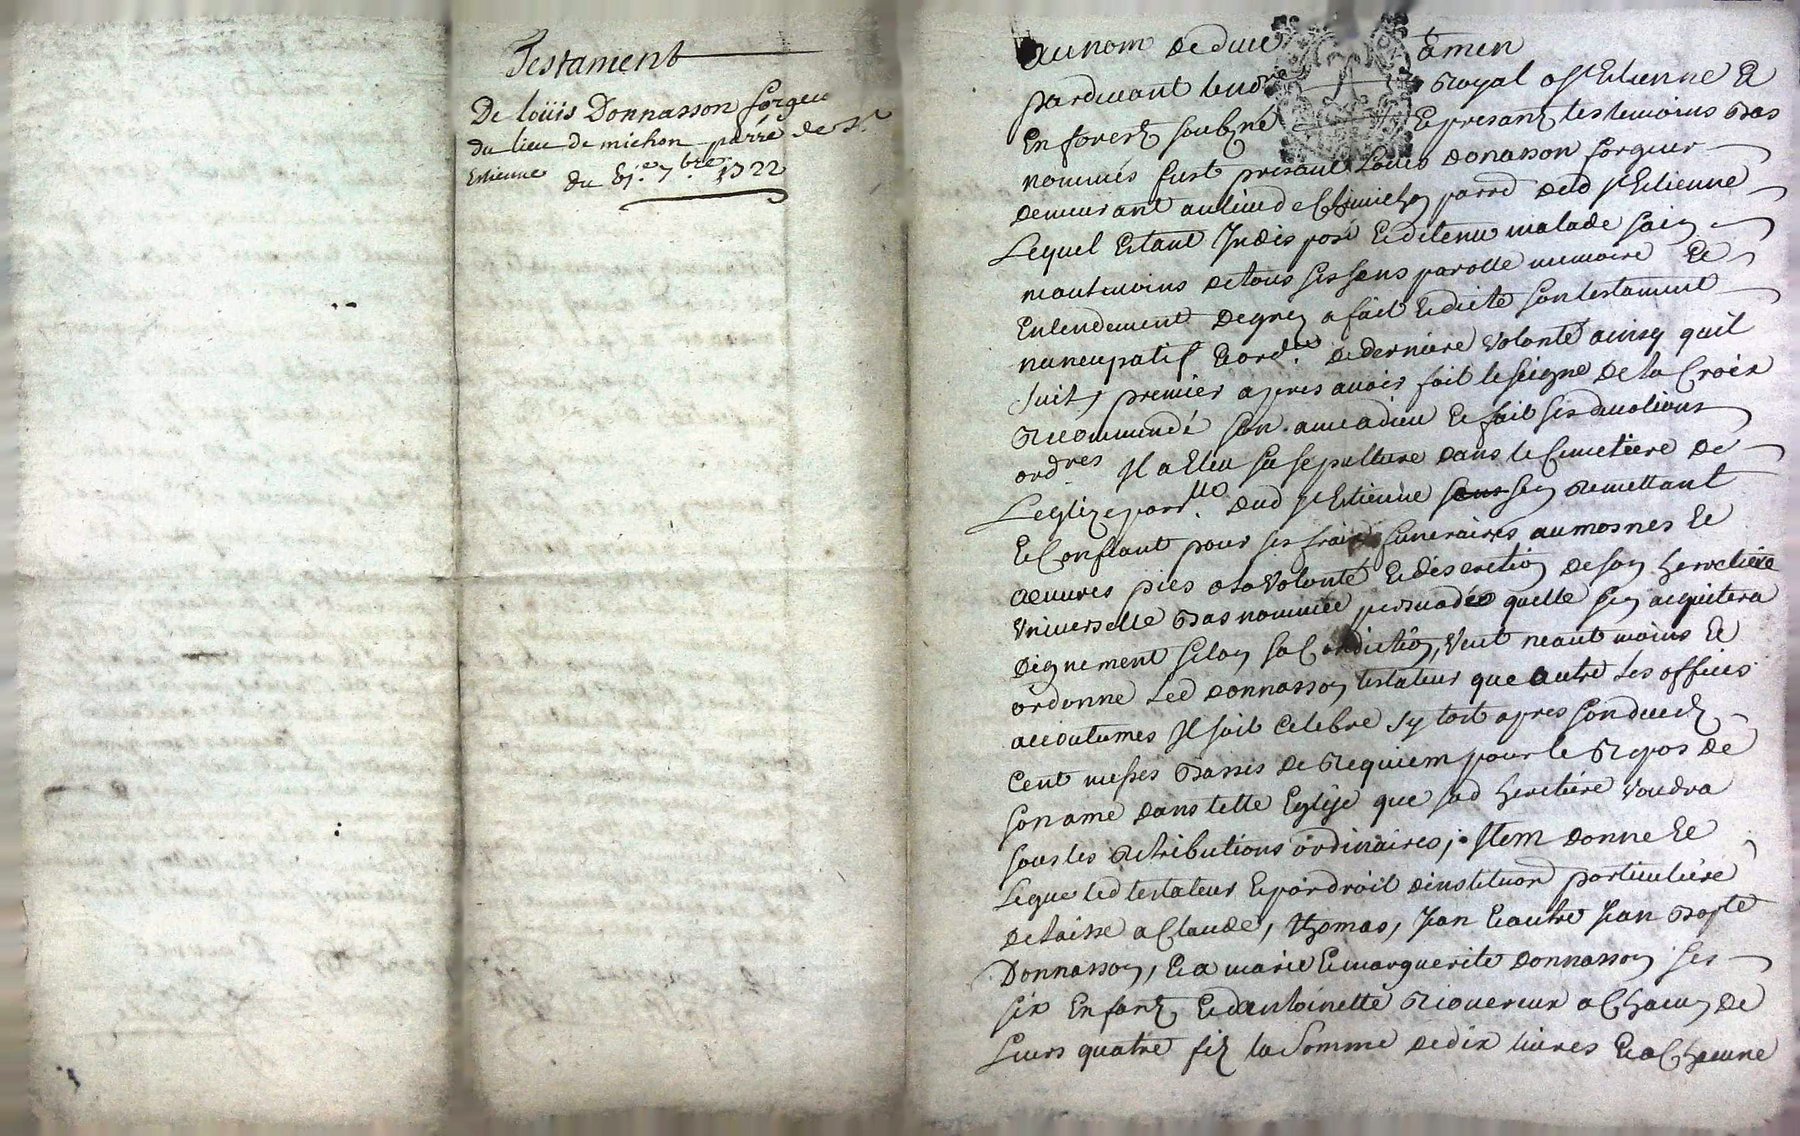 Testament
De loüis Donnasson forgeu
du lieu de michon parrê de St
Estienne du 6je 7bre 1722
au nom de dieu amen
pardevant le no.re Royal a St Estienne Et
En forest soubné Et presant les temoins Bas
nommés fust presant Louis donasson forgeur
demeurant au lieu de michon parrê dud St Etienne
Lequel Etant Indisposé Et detenu malade sain
neantmoins de tous ses sens parolle memoire Et
Entendement de grez a fait Et dicté son testament
nuncupatif Et ord.re de derniere volonté ainsy quil
suit, premier apres avoir fait le seigne de la Croix
Recommendé son ame a dieu Et fait ses devotions
ordres Il a Eleu sa sepulture dans le Cemetiere de
Leglize parr.lle dud St Estienne sen Remettant
Et Confiant pour ses frais funeraires aumosnes Et
oeuvres pies a sa volonté Et discretion de son heretiere
Universelle Bas nommée persuadée quelle sen acquitera
Dignement selon sa Condiction, veut neantmoins Et
ordonne Led donnasson testateur que autre Les offices
accoutumes Il soit Celebré sy tost apres son decedz
Cent messes Basses de Requiem pour le Repos de
son ame dans telle Eglise que sad heretiere voudra
sous les Retributions ordinaires, Item donne Et
Legue led testateur Et par droit dinstituon particuliere
delaisse a Claude, thomas, Jean Et autre Jean Bapte
Donnasson, Et a marie Et marguerite donnasson ses
six Enfanz Et dantoinette Riquereur a Chacun de
Leurs quatre filz la Somme de dix livres Et a Chacune